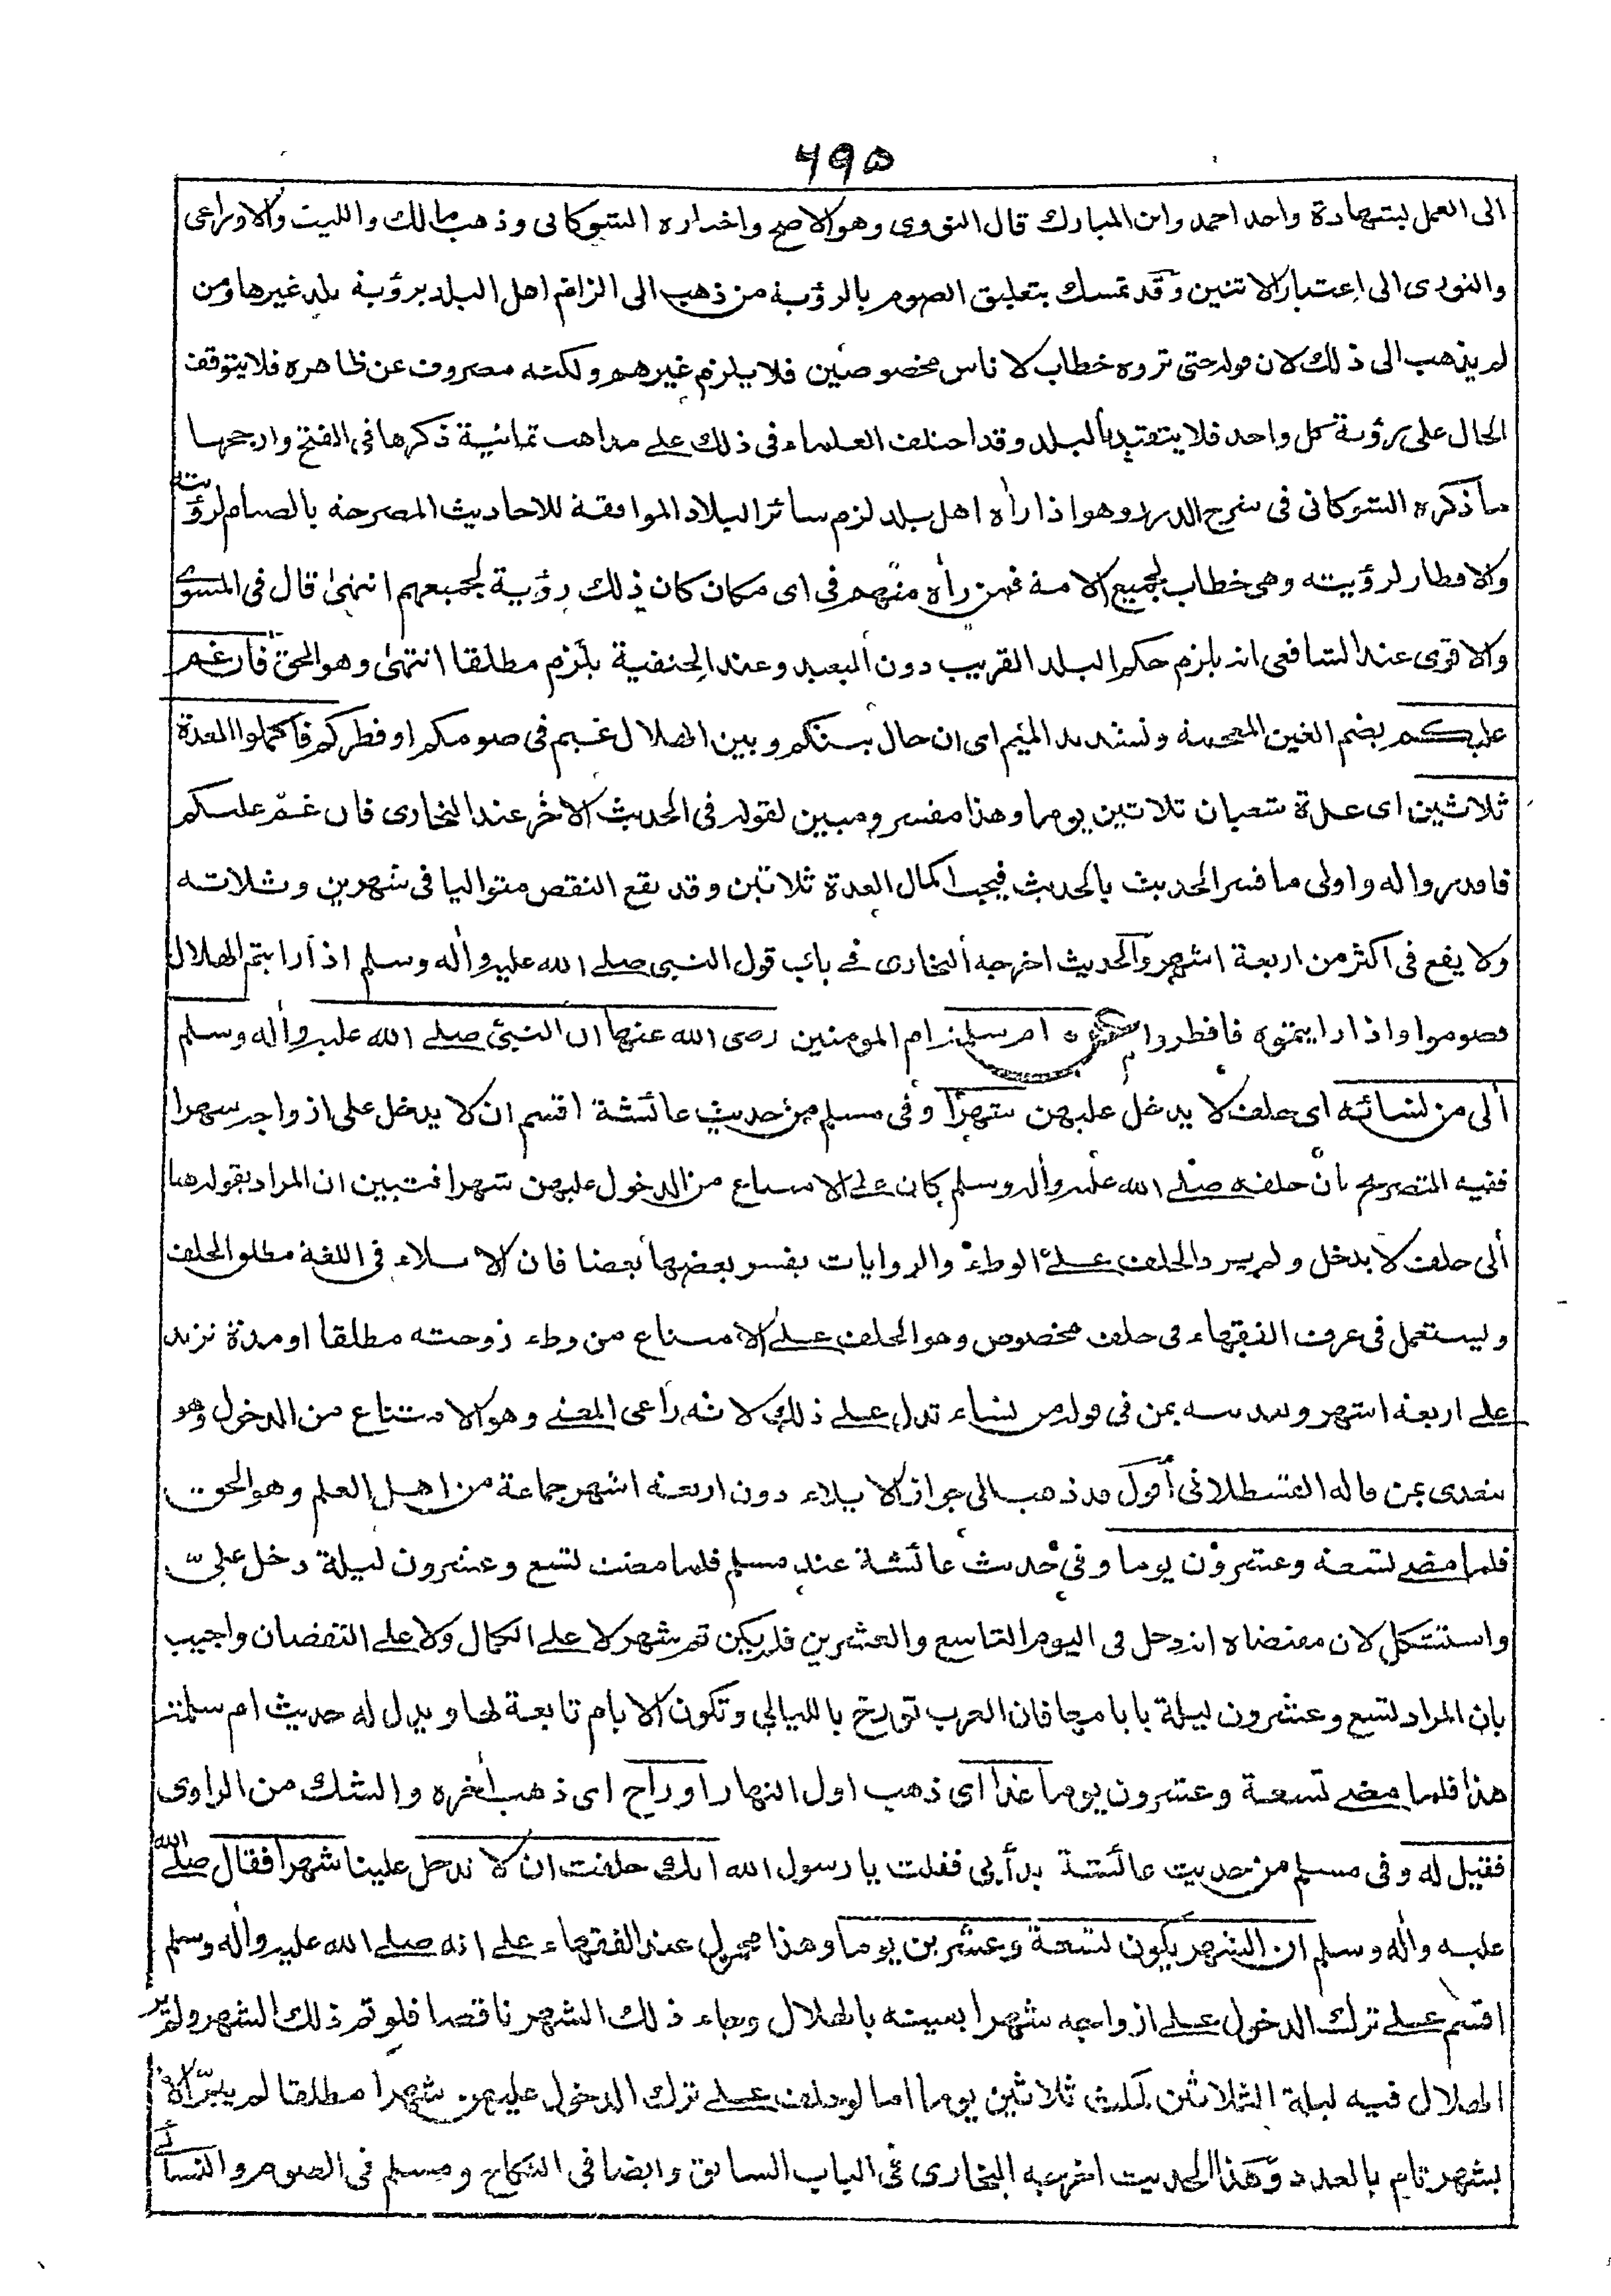 ٦٩٥
الى العمل بشهادة واحد احمد وابن المبارك قال النووى وهو الاصح واختاره الشوكانى وذهب مالك والليث والاوزاعى
والثورى الى اعتبار الاثنين وقد تمسك بتعليق الصوم بالرؤية من ذهب الى الزام اهل البلد برؤية بلد غيرها ومن
لم يذهب الى ذلك لان قوله حتى تروه خطاب لاناس مخصوصين فلا يلزم غيرهم ولكنه مصروف عن ظاهره فلا يتوقف
الحال على رؤية كل واحد فلا يتقيد بالبلد وقد اختلف العلماء فى ذلك على مذاهب ثمانية ذكرها فى الفتح وارجحها
ما ذكره الشوكانى فى شرح الدرر وهو اذا راٰه اهل بلد لزم سائر البلاد الموافقة للاحاديث المصرحة بالصيام لرؤيته
والافطار لرؤيته وهى خطاب لجميع الامة فمن راٰه منهم فى اى مكان كان ذلك رؤية لجميعهم انتهىٰ قال فى المسوى
والاقوى عند الشافعى انه يلزم حكم البلد القريب دون البعيد وعند الحنفية يلزم مطلقا انتهىٰ وهو الحق فان غم
عليكم بضم الغين المعجمة وتشديد الميم اى ان حال بينكم وبين الهلال غيم فى صومكم او فطركم فاكملوا العدة
ثلاثين اى عدة شعبان ثلاثين يوما وهذا مفسر ومبين لقوله فى الحديث الاٰخر عند البخارى فان غمّ عليكم
فاقدروا له واولى ما فسر الحديث بالحديث فيجب اكمال العدة ثلاثين وقد يقع النقص متواليا فى شهرين وثلاثة
ولا يقع فى اكثر من اربعة اشهر والحديث اخرجه البخارى فے باب قول النبى صلے الله عليه واٰله وسلم اذا رايتم الهلال
فصوموا واذا رايتموه فافطروا ام سلمة ام المومنين رضى الله عنها ان النبى صلے الله عليه واٰله وسلم
اٰلى من نسائه اى حلف لا يدخل عليهن شهرًا وفى مسلم من حديث عائشة اقسم ان لا يدخل على ازواجه شهرا
ففيه التصريح بان حلفه صلے الله عليه واٰله وسلم كان علے الامتناع من الدخول عليهن شهرا فتبين ان المراد بقوله هنا
اٰلى حلف لا يدخل ولم يرد الحلف علے الوطء والروايات يفسر بعضها بعضا فان الايلاء فى اللغة مطلق الحلف
ويستعمل فى عرف الفقهاء فى حلف مخصوص وهو الحلف علے الامتناع من وطء زوجته مطلقا او مدة تزيد
علے اربعة اشهر وتعديته بمن فى قوله من نسائه تدل علے ذلك لانه راعى المعنے وهو الامتناع من الدخول وهو
يتعدى بمن قاله القسطلانى أقول قد ذهب الى جواز الايلاء دون اربعة اشهر جماعة من اهل العلم وهو الحق
فلما مضے تسعة وعشرون يوما وفى حديث عائشة عند مسلم فلما مضت تسع وعشرون ليلة دخل علىّ
واستشكل لان مقتضاه انه دخل فى اليوم التاسع والعشرين فلم يكن تم شهر لا علے الكمال ولا علے النقصان واجيب
بان المراد تسع وعشرون ليلة بايامها فان العرب تورخ بالليالى وتكون الايام تابعة لها ويدل له حديث ام سلمة
هذا فلما مضے تسعة وعشرون يوما غدا اى ذهب اول النهار او راح اى ذهب اٰخره والشك من الراوى
فقيل له وفى مسلم من حديث عائشة بدأ بى فقلت يا رسول الله انك حلفت ان لا تدخل علينا شهرا فقال صلے الله
عليه واٰله وسلم ان الشهر يكون تسعة وعشرين يوما وهذا محمول عند الفقهاء علے انه صلے الله عليه واٰله وسلم
اقسم علے ترك الدخول علے ازواجه شهرا بعينه بالهلال وجاء ذلك الشهر ناقصا فلو تم ذلك الشهر ولم ير
الهلال فيه ليلة الثلاثين لمكث ثلاثين يوما اما لو حلف علے ترك الدخول عليهن شهرا مطلقا لم يبرّ الا
بشهر تام بالعدد وهذا الحديث اخرجه البخارى فى الباب السابق وايضا فى النكاح ومسلم فى الصوم والنسائى